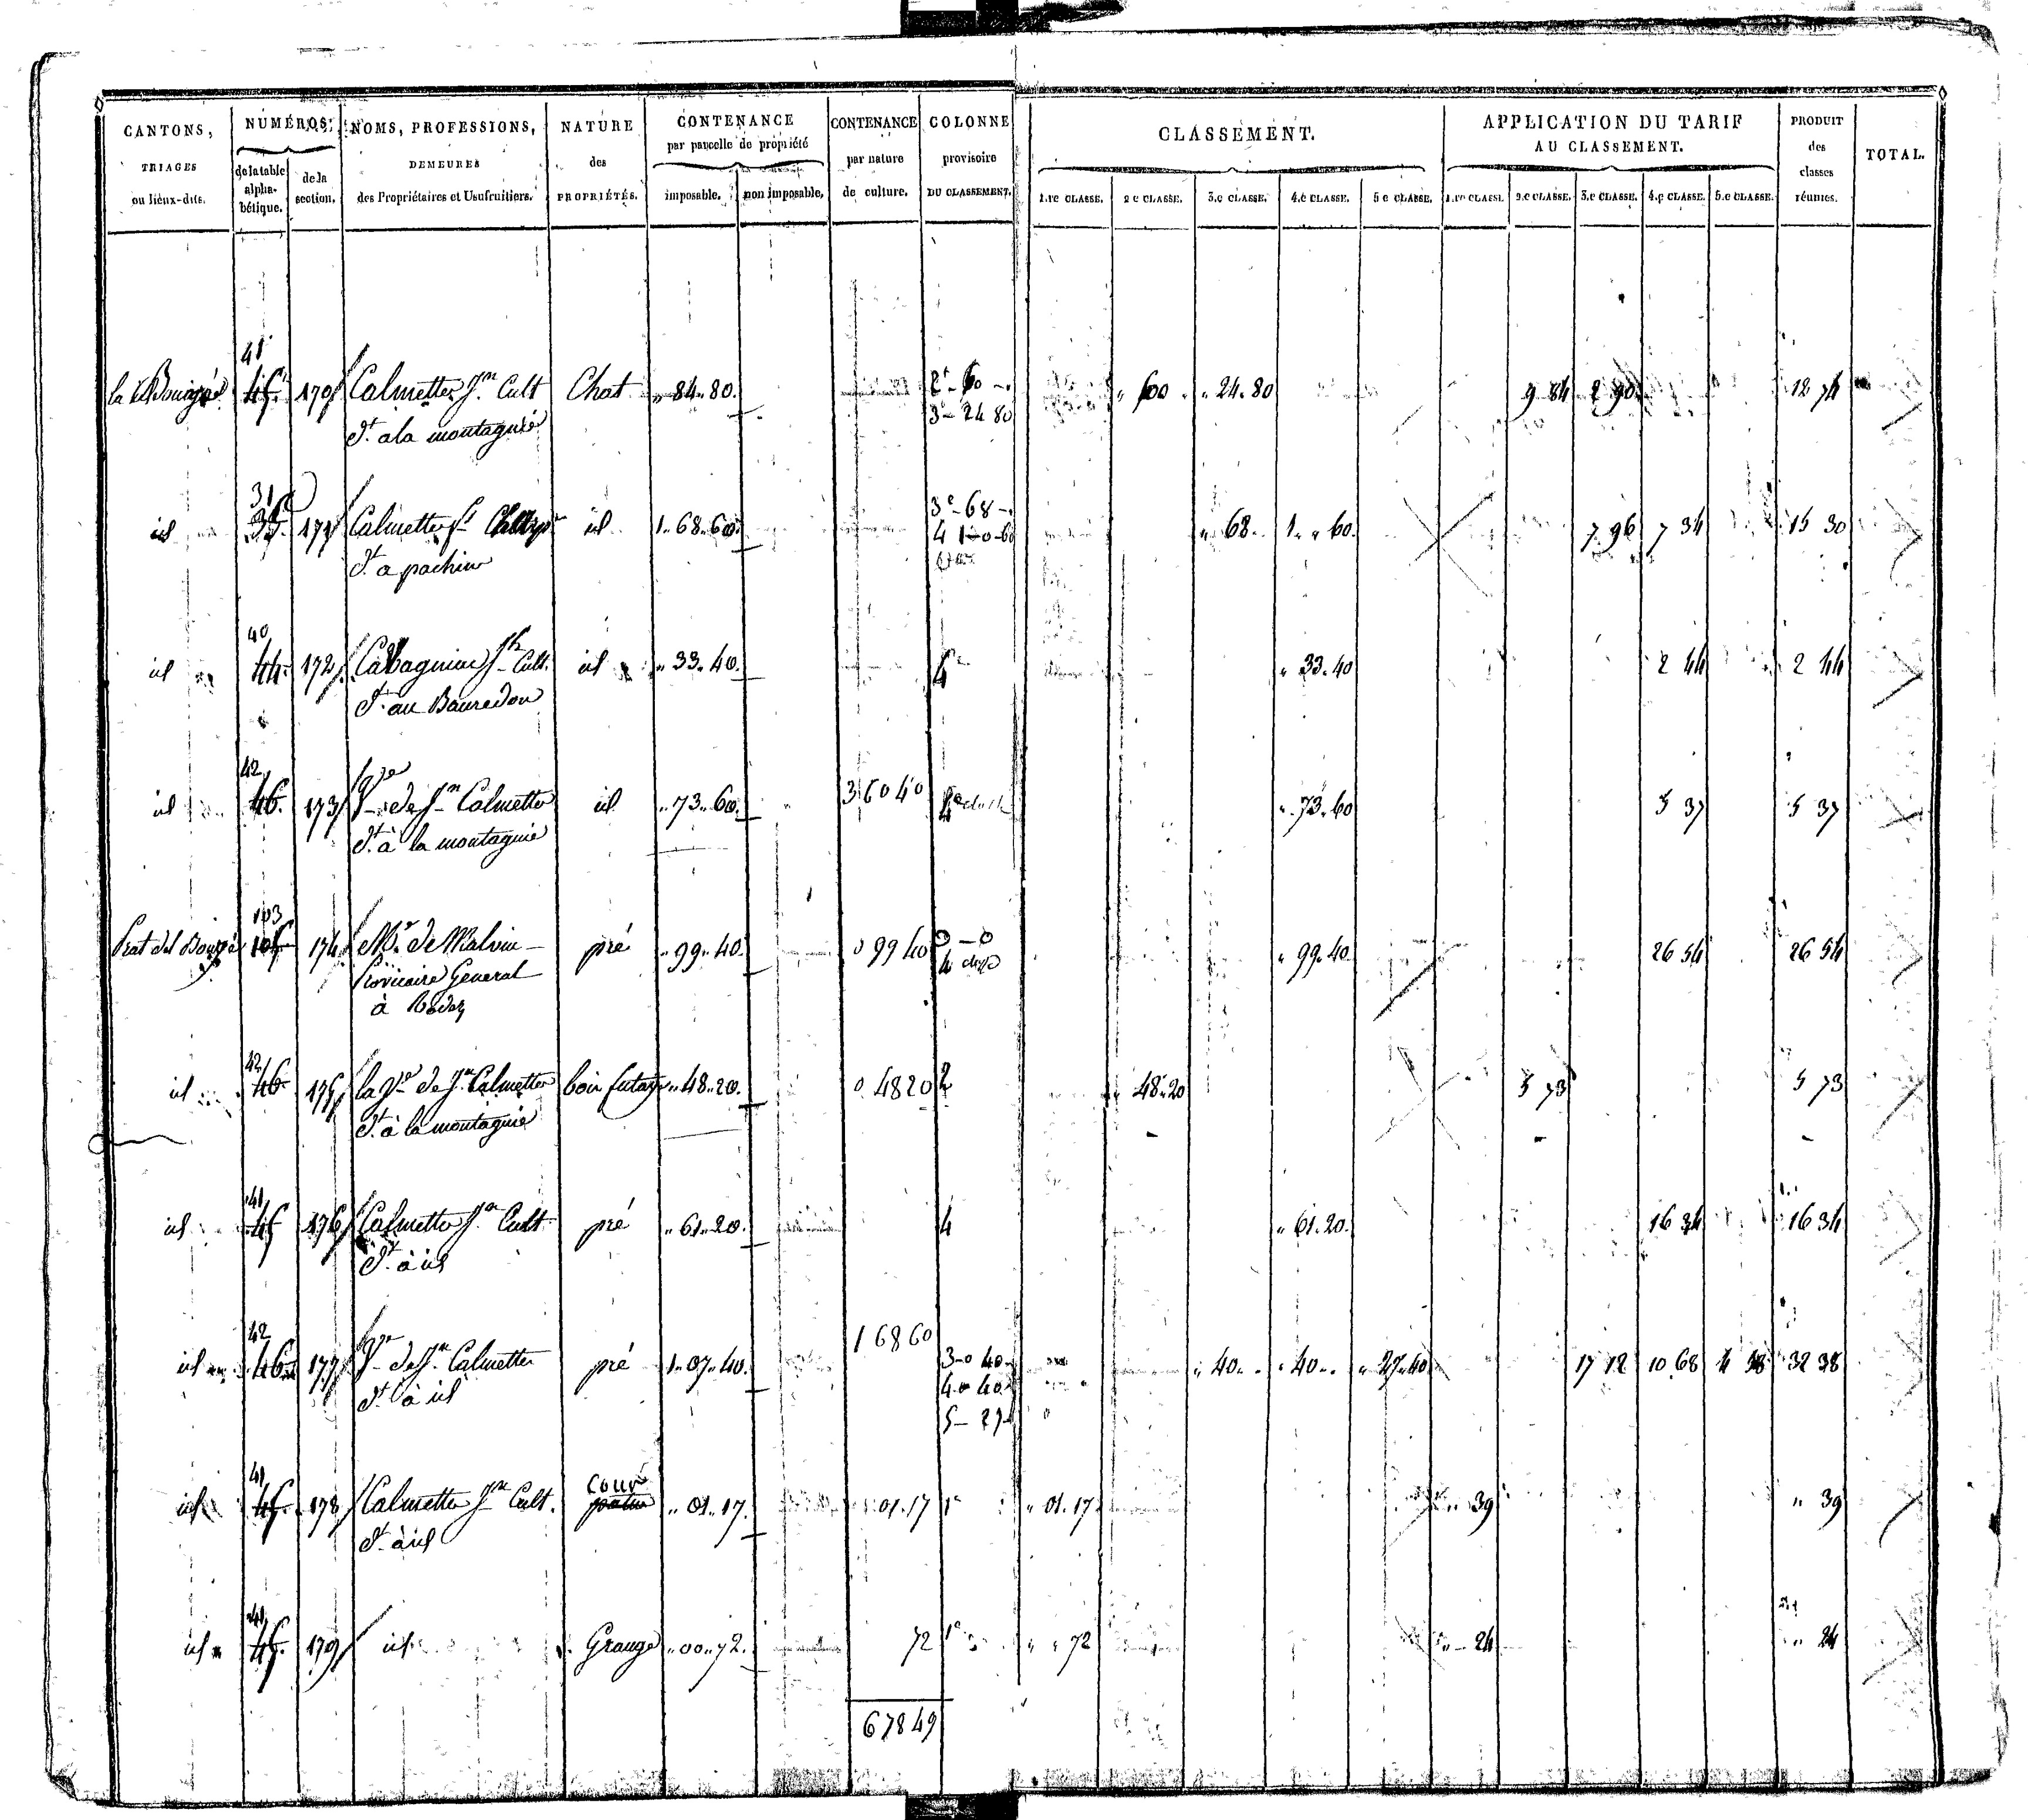 CANTONS, TRIAGES ou lieux-dits.
NUMÉROS: de la table alphabétique. de la section.
NOMS, PROFESSIONS, DEMEURES des Propriétaires et Usufruitiers.
NATURE des PROPRIÉTÉS.
CONTENANCE par parcelle de propriété imposable. non imposable.
CONTENANCE par nature de culture.
COLONNE provisoire DU CLASSEMENT.
CLASSEMENT.
1.re CLASSE. 2.e CLASSE. 3.e CLASSE. 4.e CLASSE. 5.e CLASSE.
APPLICATION DU TARIF AU CLASSEMENT.
1.re CLASSE. 2.e CLASSE. 3.e CLASSE. 4.e CLASSE. 5.e CLASSE.
PRODUIT des classes réunies.
TOTAL.
41
45. 170 Calmettes Jn Cult Chat „ 84. 80. 2e 60 „ 60 „ „ 24. 80 9 84 2 90 12 74
dt a la montagnié 3 - 24 80
31 3e - 68 -
id 171 Calmettes id 1. 68. 60. 4 1-0-60 „ 68 „ 1. „ 60. 7 96 7 34 15 30
dt a pachins
40
id 44. 172 Cult. id „ 33. 40. 4 „ 33. 40 2 44 2 44
dt au Bauredon
42
id 46. 173 Ve de Jn Calmettes id „ 73. 60. 3 60 40 4 „ 73. 60 5 37 5 37
dt à la montagnié
103
Prat del 174 Mr. de Malvin pré „ 99. 40. 0 99 40 4 „ 99. 40. 26 54 26 54
Provicaire General
à Rodez
42
id 46. 175 la Ve de Jn Calmettes bois futaye „ 48. 20. 0 48 20 2 „ 48. 20 5 73 5 73
dt à la montagnié
41
id 45 176 Calmettes Jn Cult. pré „ 61. 20. 4 „ 61. 20. 16 34 16 34
dt à id
42 1 68 60
id 46 177 Ve de Jn Calmettes pré 1. 07. 40. 3-0 40 „ 40. „ „ 40. „ „ 27. 40 17 12 10 68 32 38
dt à id 4-0 40
5 - 27
41 cour
id 45. 178 Calmettes Jn Cult. patus „ 01. 17. 01. 17 1e „ 01. 17. „ 39 „ 39
dt à id
41
id 45. 179 id Grange „ 00. 72. 72 1e „ „ 72 „ 24 „ 24
6 78 49